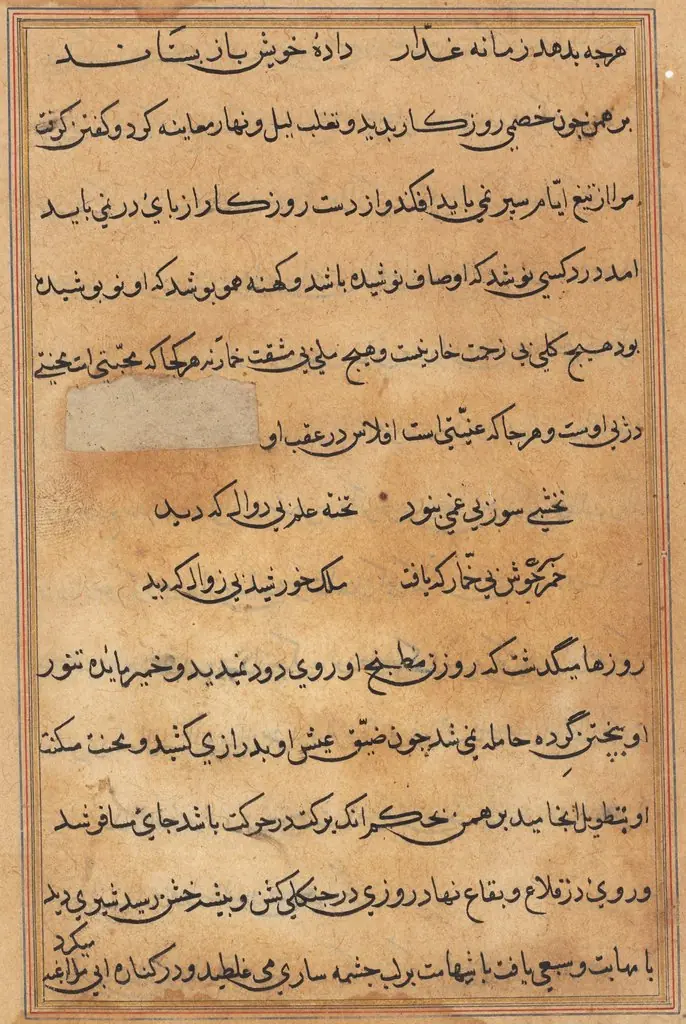 هرجه بدهد زمانه غدّار دادهٔ خویش باز بستاند
برهمن جون خصمی روزکار بدید و تغلب لیل و نهار معاینه کرد و کفتن کرفت
مرا از تیغ ایّام سپر نمی باید افکند و از دست روزکار از بای در نمی باید
امد درد کسی نوشد که او صاف نوشیده باشد و کهنه هم و بوشد که او نو بوشیده
بود هیج کلی بی زحمت خار نیست و هیج ملی بی مشقت خمار نه هر کجا که محبّتی است محنتی
در بی اوست و هر جا که غنیّتی است افلاس در عقب او
نخشبی سور بی غمی بنود تخته علم بی دوال که دید
خمر خوش بی خمار که یافت ملک خورشید بی زوال که دید
روزها میگدشت که روزن مطبخ او روی دود نمیدید و خمیر مایده تنور
او بپختن گرده حامله نمی شد جون ضیّق عیش او بدرازی کشید و محنت مسکنت
او بتطویل انجامید برهمن بحکم انک برکت در حرکت باشد جای مسافر شد
و روی در قلاع و بقاع نهاد روزی در جنکلی کشن و بیشه خشن رسید شیری دید
با مهابت و سبعی یافت با شهامت بر لب جشمه ساری می غلطید و در کناره ابی مراغه
میکرد